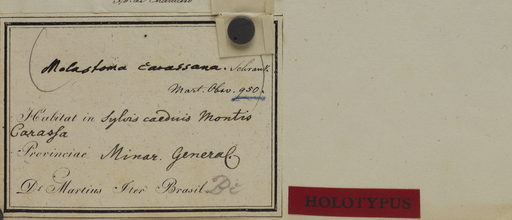 Melastoma carassana. Schrank.
Mart. Obsv. 950.
Habitat in Sylvis caeduis Montis
Carassa
Provinciae Minar. General.
Dr Martius Iter Brasil.
HOLOTYPUS